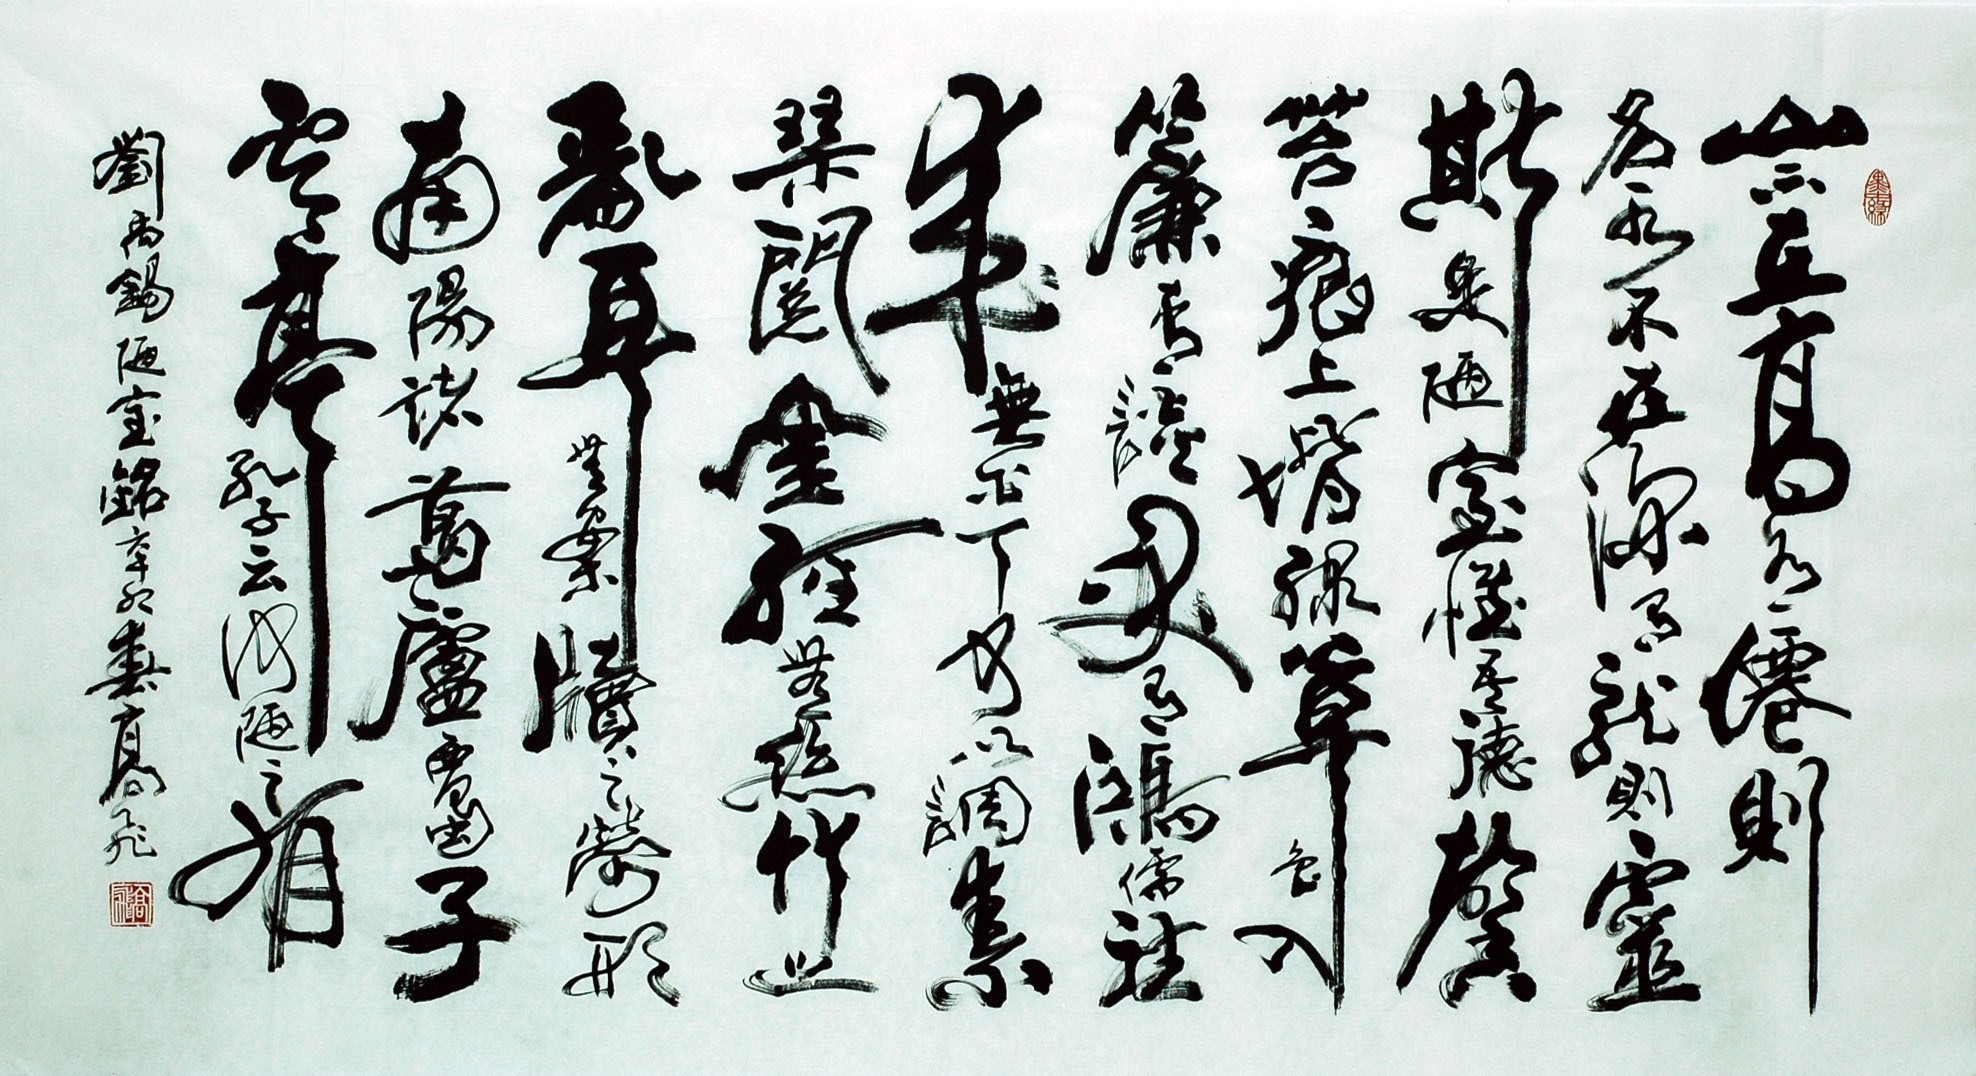 山不在高有僊則
名水不在深有龍則靈
斯是陋室惟吾德馨
苔痕上堦綠草色入
簾青談笑有鴻儒往
來無白丁可以調素
琴閱金經無絲竹之
亂耳無案牘之勞形
南陽諸葛廬西蜀子
雲亭孔子云何陋之有
劉禹錫陋室銘辛卯春高飛